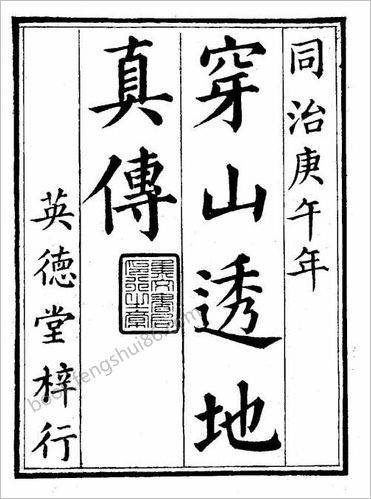 同治庚午年
穿山透地
真傳
英德堂梓行